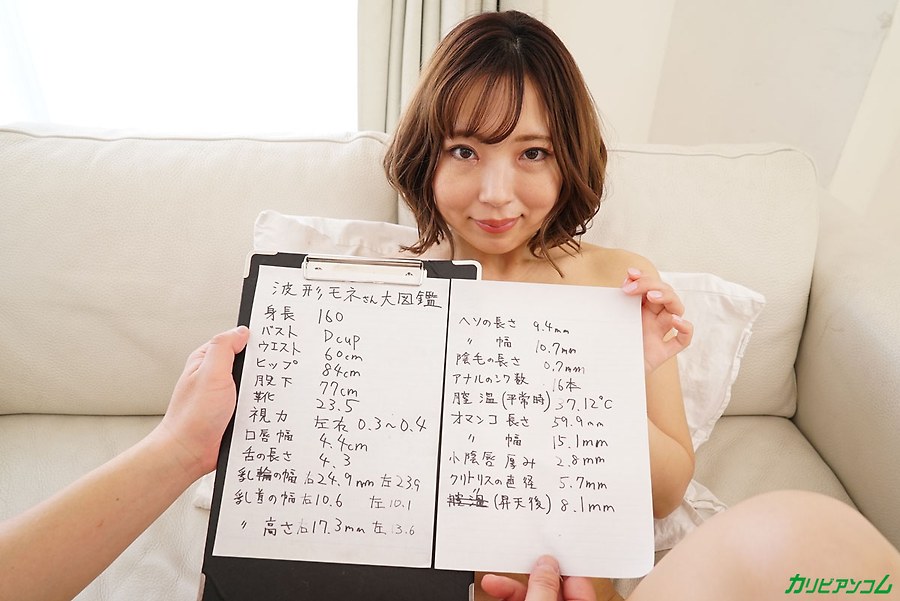 波形モネさん大図鑑
身長 160
バスト Dcup
ウエスト 60cm
ヒップ 84cm
股下 77cm
靴 23.5
視力 左右 0.3~0.4
口唇幅 4.4cm
舌の長さ 4.3
乳輪の幅 右24.9mm 左23.9
乳首の幅 右10.6 左10.1
〃 高さ 右17.3mm 左13.6
ヘソの長さ 9.4mm
〃 幅 10.7mm
陰毛の長さ 0.7mm
アナルのシワ数 16本
膣温(平常時) 37.12℃
オマンコ長さ 59.9mm
〃 幅 15.1mm
小陰唇厚み 2.8mm
クリトリスの直径 5.7mm
(昇天後) 8.1mm
カリビアンコム